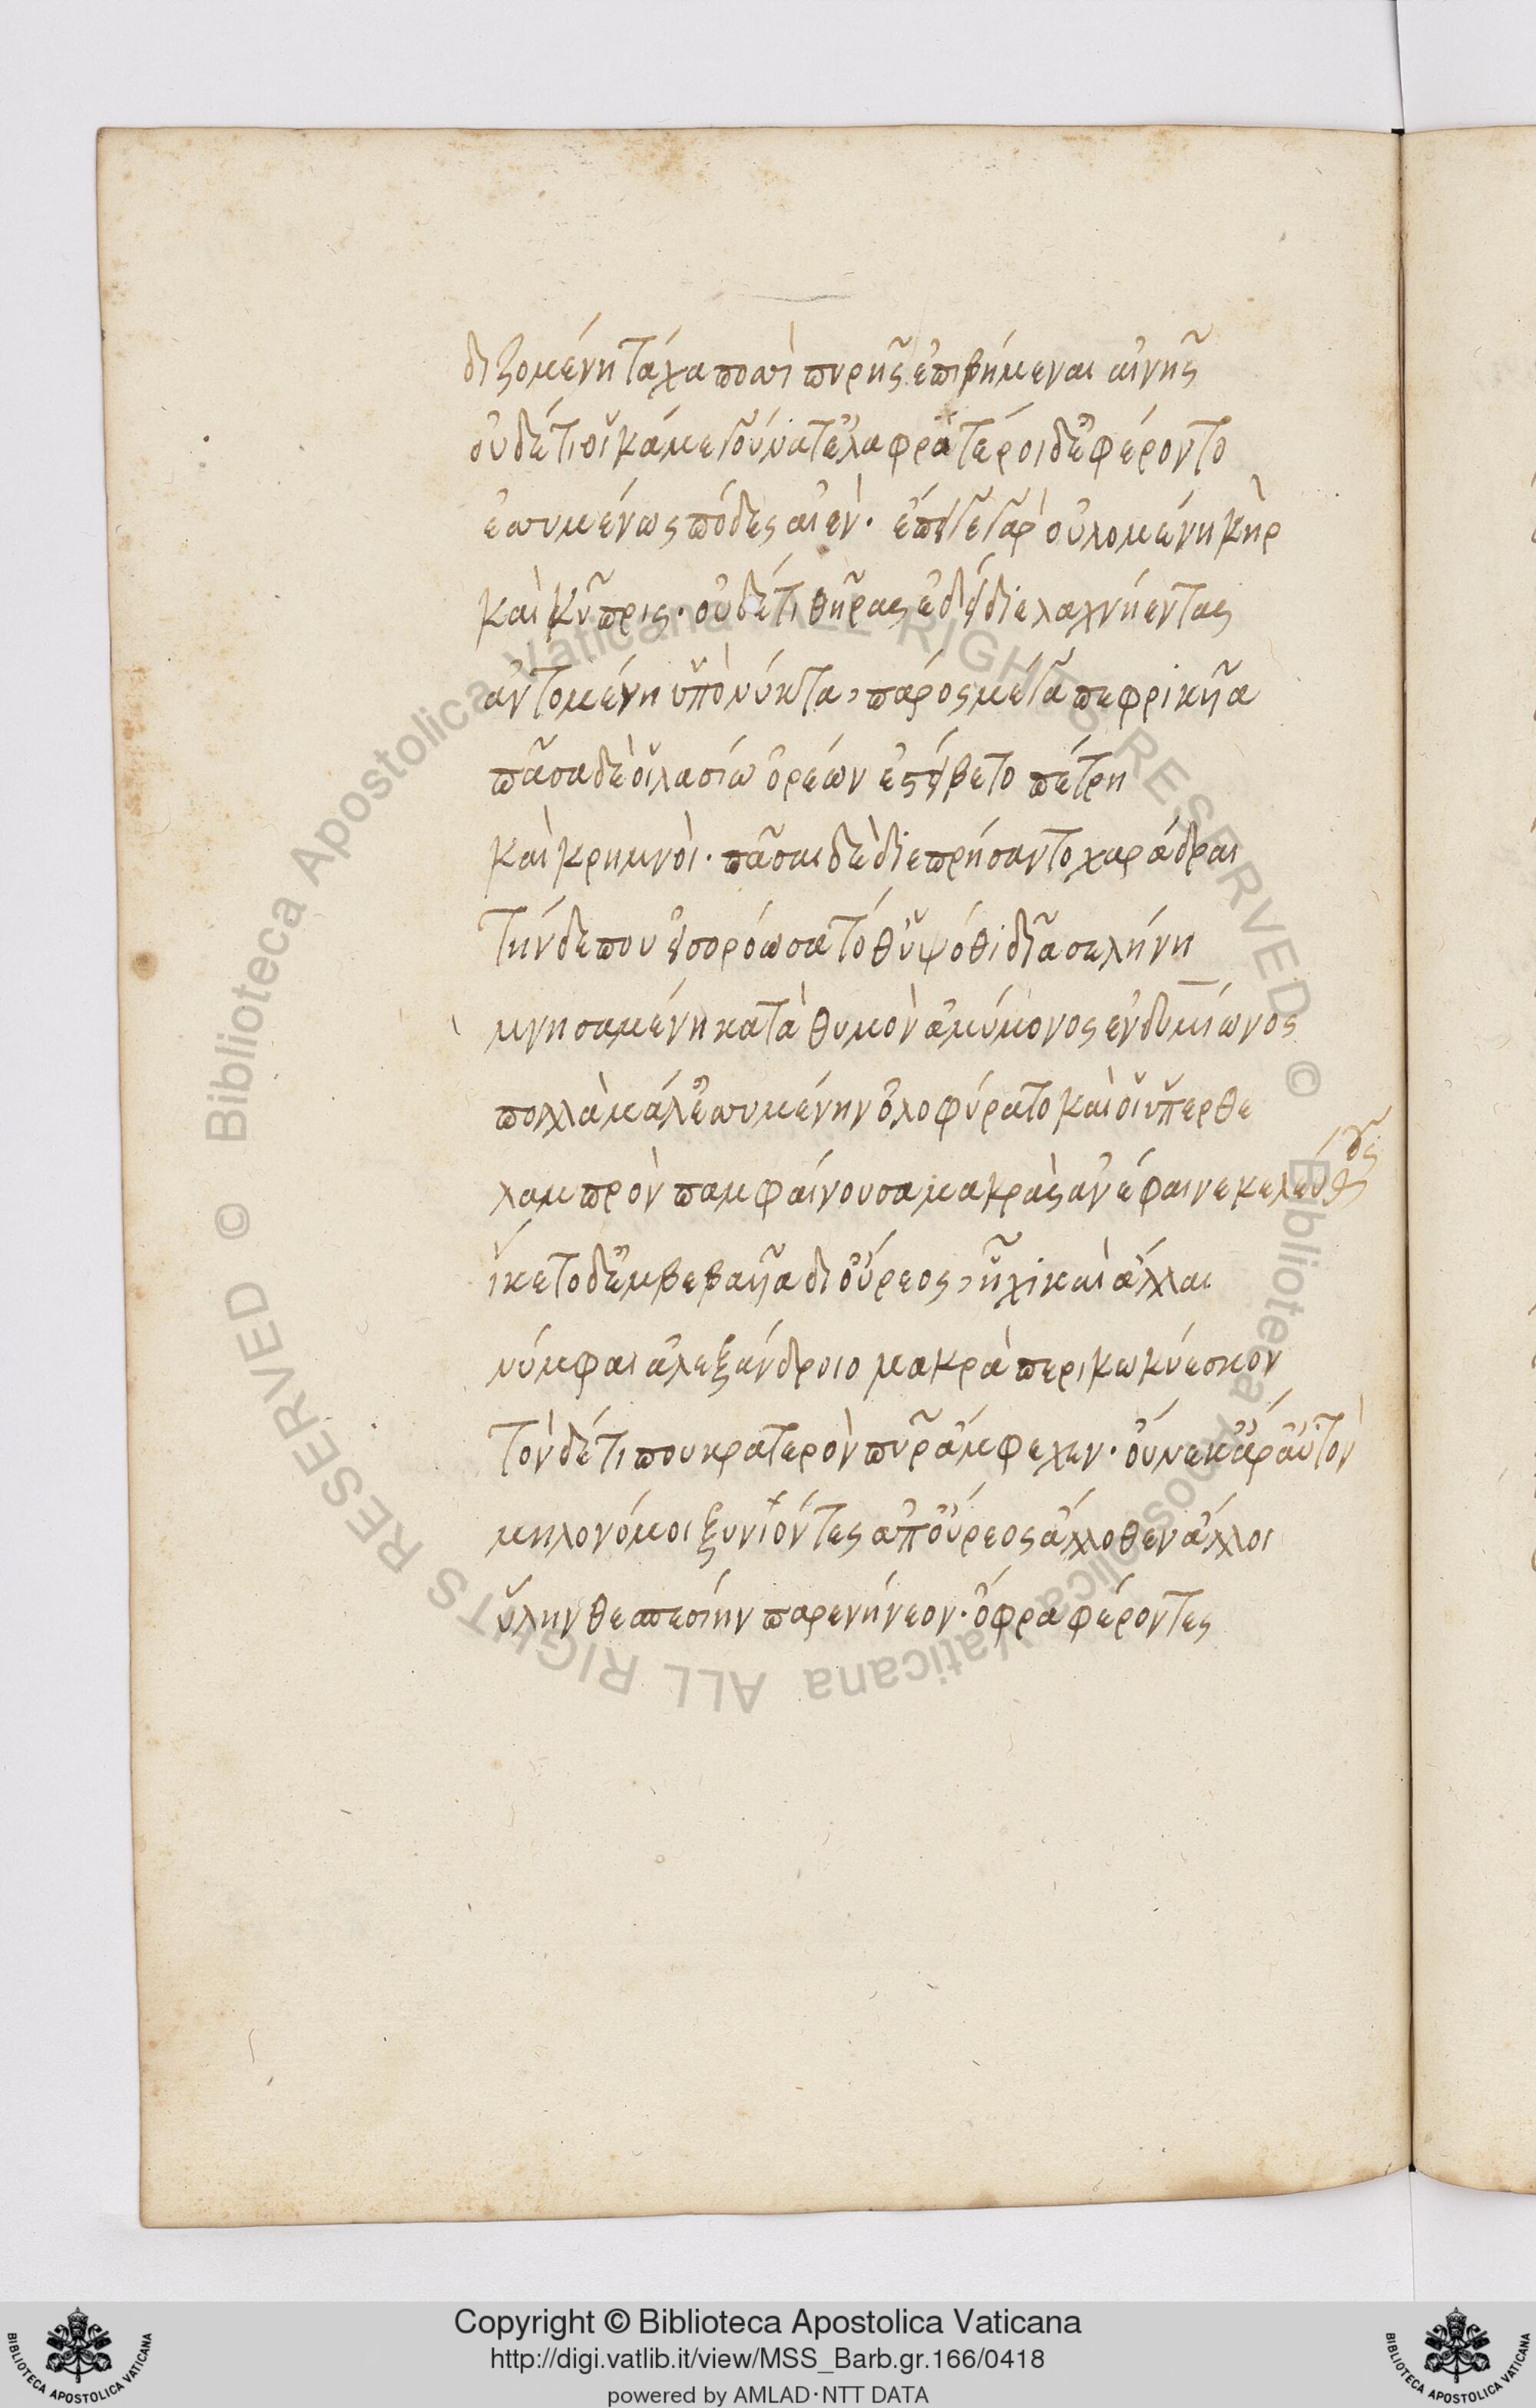 διζομένη τάχα ποσὶ πυρῆς ἐπιβήμεναι αἰνῆς
οὐδέ τι οἱ κάμε γούνατ' ἐλαφρότεροι δ' ἐφέροντο
ἐσσυμένως πόδες αἰέν· ἔπειγε γὰρ οὐλομένη κὴρ
καὶ κύπρις· οὐδέ τι θῆρας ἐδείδιε λαχνήεντας
ἀντομένη ὑπὸ νύκτα, πάρος μέγα πεφρικυῖα
πᾶσα δέ οἱ λασίων ὀρέων ἐστείβετο πέτρη
καὶ κρημνοί· πᾶσαι δὲ διεπρήσαντο χαράδραι
τὴν δέ που εἰσορόωσα τόθ' ὑψόθι δῖα σελήνη
μνησαμένη κατὰ θυμὸν ἀμύμονος ἐνδυμίωνος
πολλὰ μάλ' ἐσσυμένην ὀλοφύρατο καί οἱ ὕπερθε
λαμπρὸν παμφαίνουσα μακρὰς ἀνέφαινε κελεύθους
ἵκετο δ' ἐμβεβαυῖα δι' οὔρεος, ἧχι καὶ ἄλλαι
νύμφαι ἀλεξάνδροιο μακρὰ περικωκύεσκον
τὸν δ' ἔτι που κρατερὸν πῦρ ἄμφεχεν· οὕνεκ' ἄρ' αὐτὸν
μηλονόμοι ξυνιόντες ἀπ' οὔρεος ἄλλοθεν ἄλλοι
ὕλην θεσπεσίην παρενήνεον· ὄφρα φέροντες
Copyright © Biblioteca Apostolica Vaticana
http://digi.vatlib.it/view/MSS_Barb.gr.166/0418
powered by AMLAD·NTT DATA
BIBLIOTECA APOSTOLICA VATICANA
BIBLIOTECA APOSTOLICA VATICANA
© Biblioteca Apostolica Vaticana ALL RIGHTS RESERVED © Biblioteca Apostolica Vaticana ALL RIGHTS RESERVED